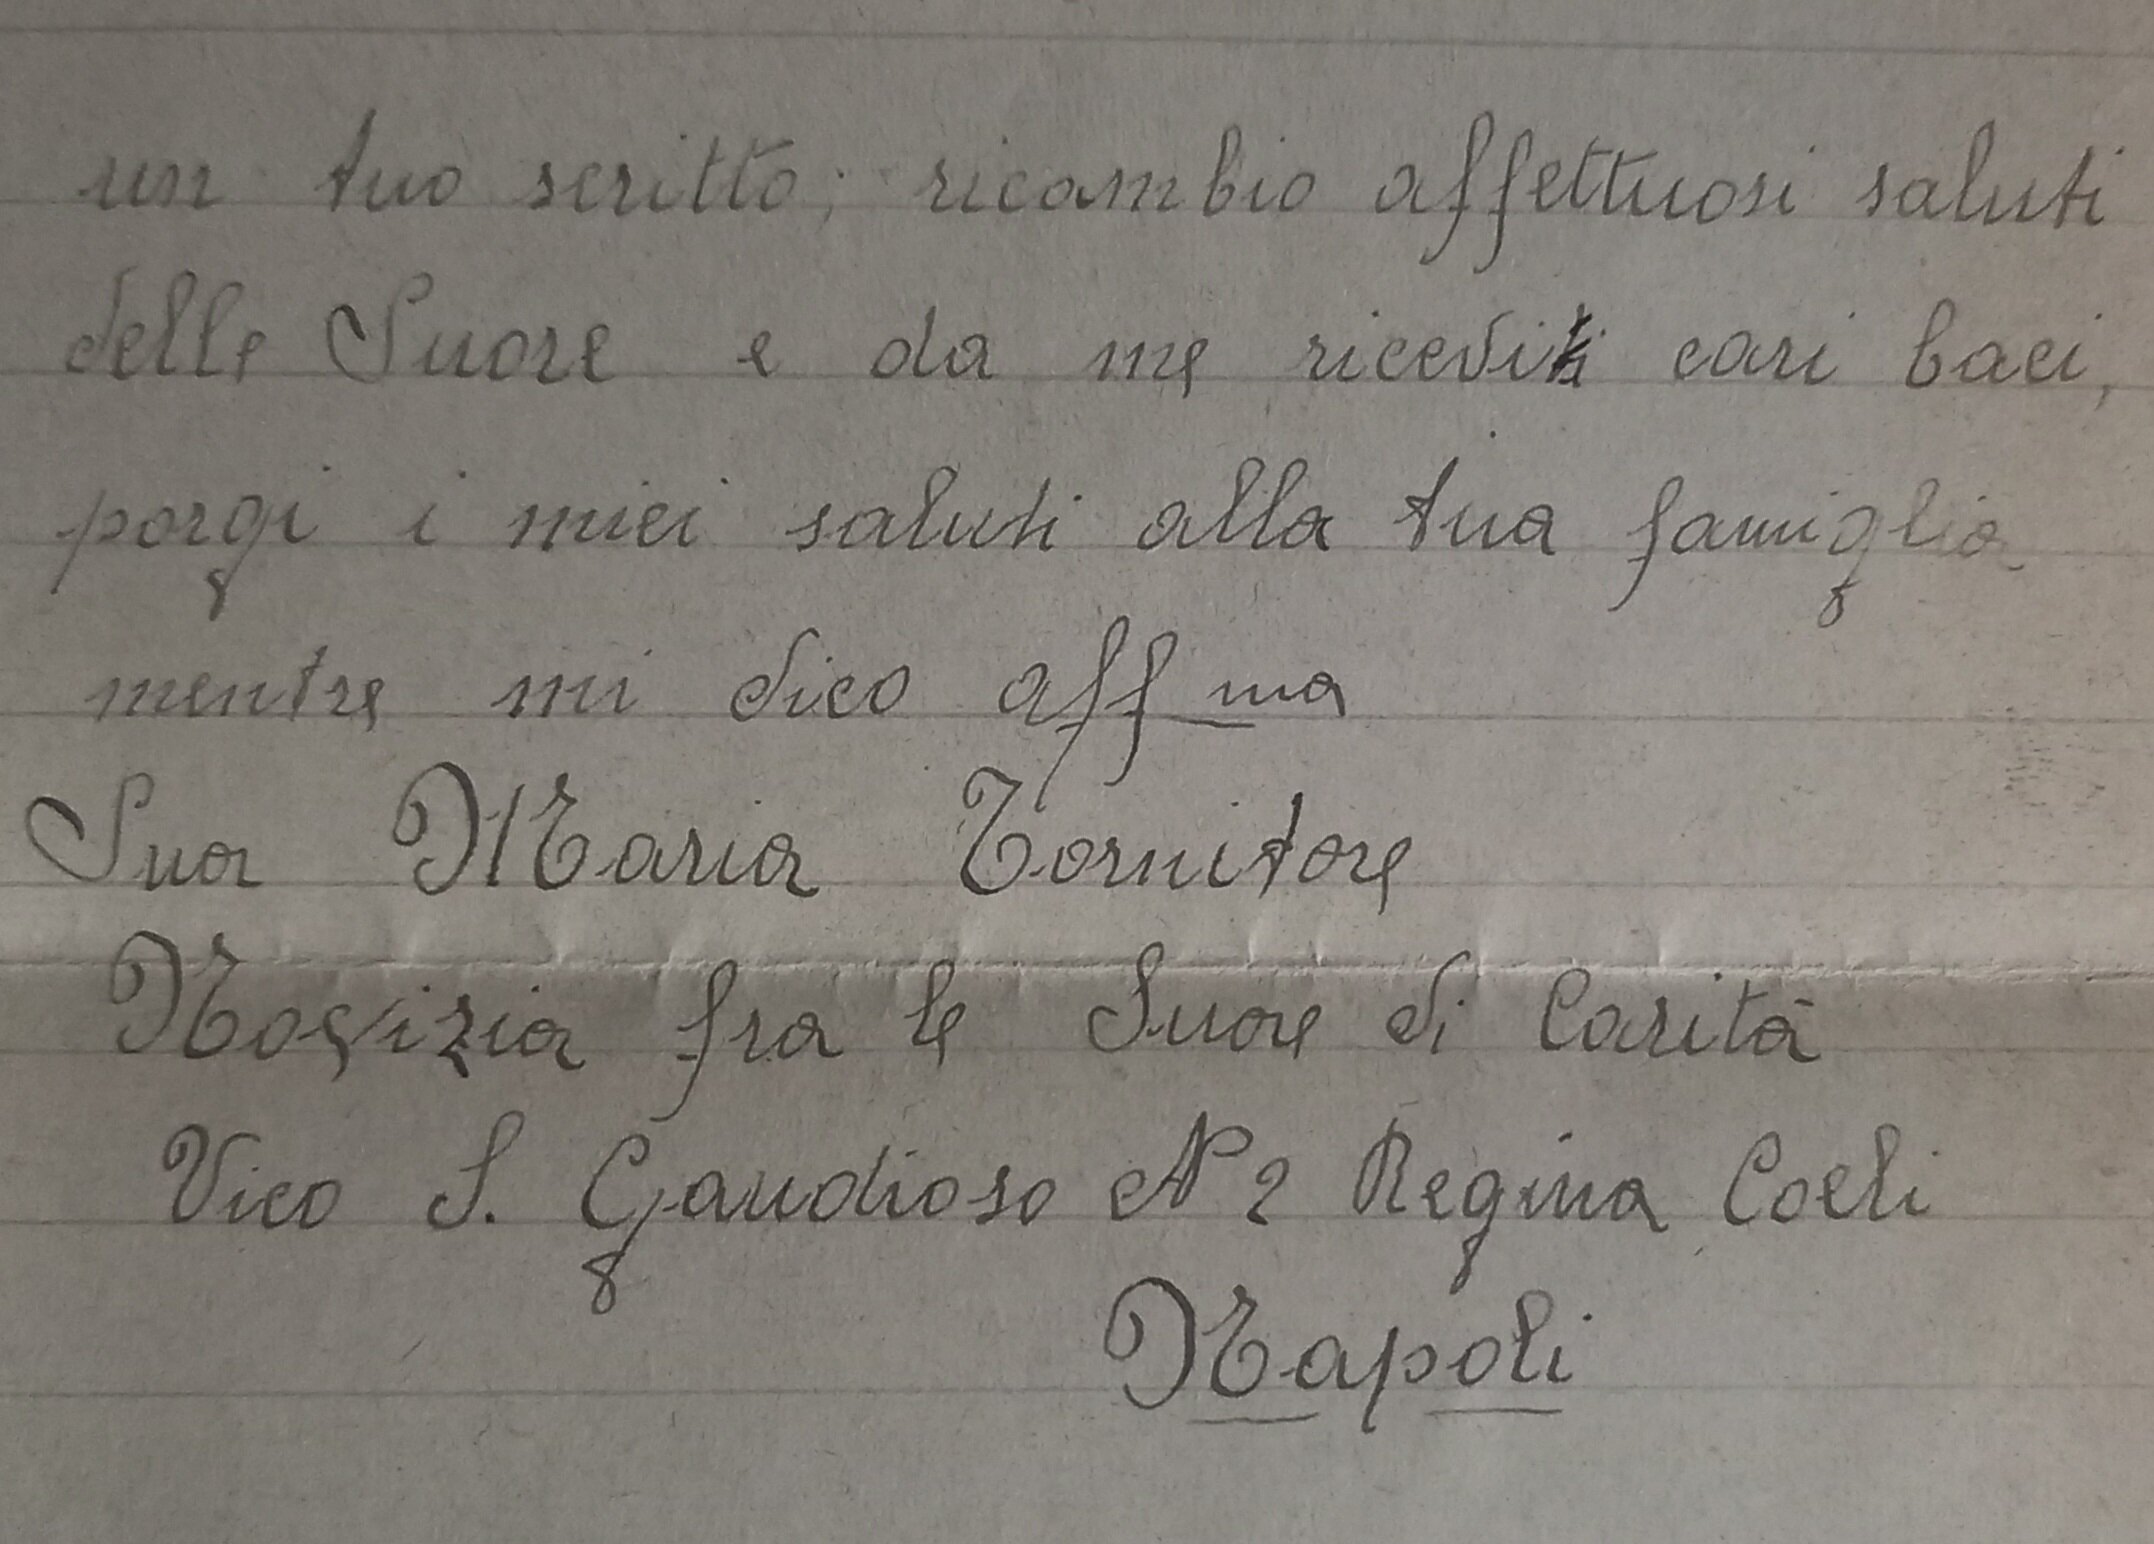 un tuo scritto; ricambio affettuosi saluti
delle Suore e da me ricediti cari baci,
porgi i miei saluti alla tua famiglia
mentre mi dico aff ma
Sua Maria Tornitore
Novizia fra le Suore di Carità
Vico S. Gaudioso N° 2 Regina Coeli
Napoli